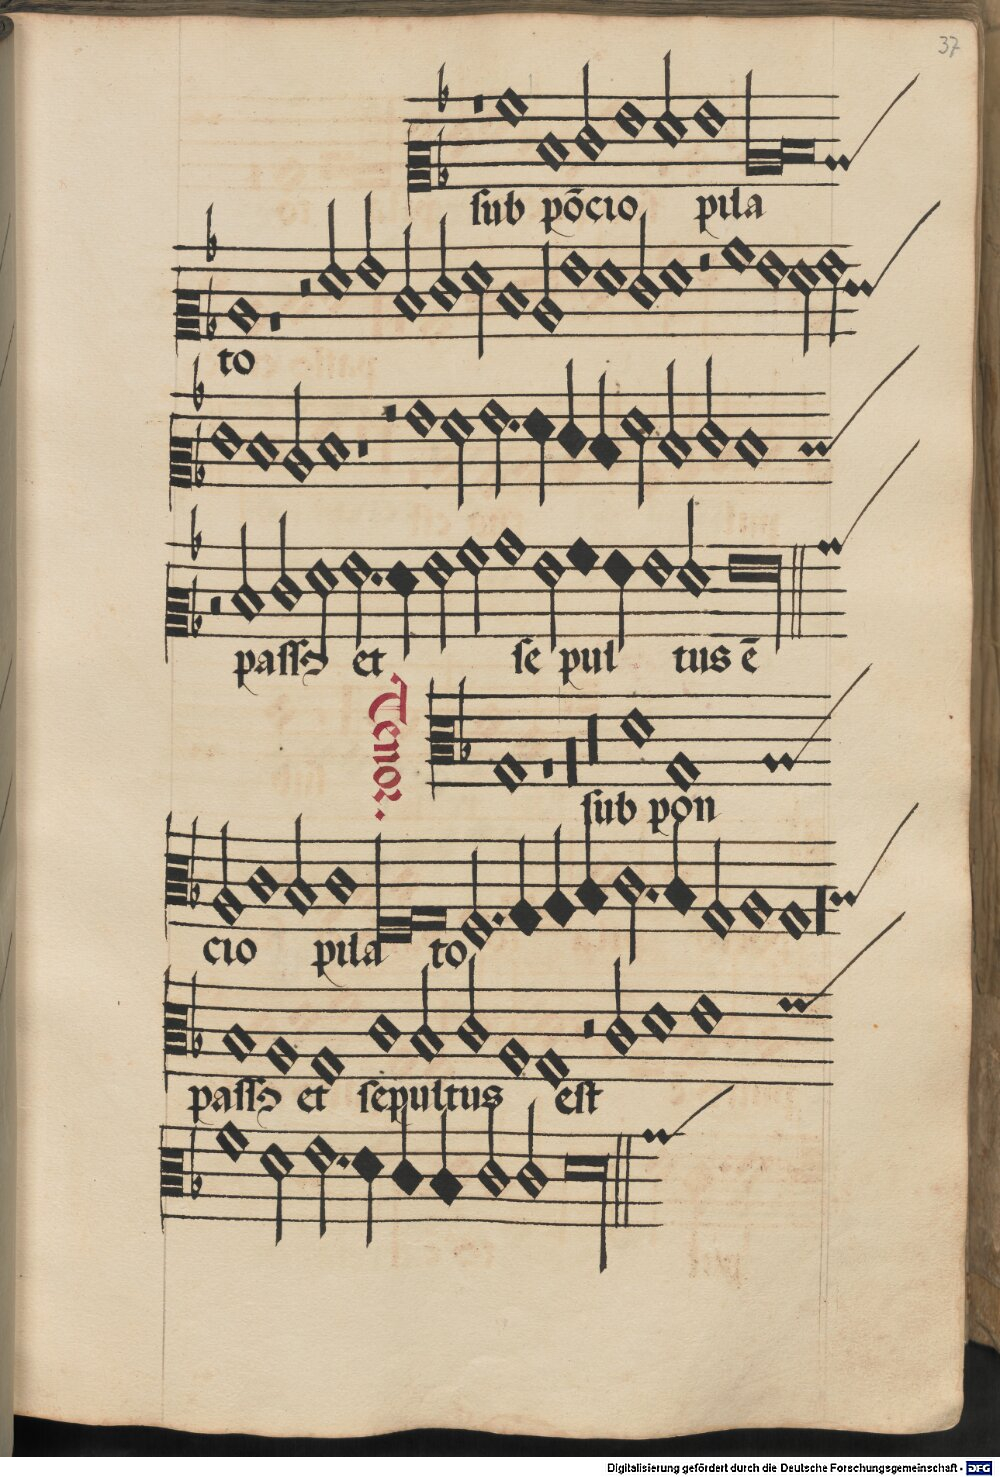 37
sub põcio pila
to
passꝰ et se pul tus ē
Tenor.
sub pon
cio pila to
passꝰ et sepultus est
Digitalisierung gefördert durch die Deutsche Forschungsgemeinschaft - DFG